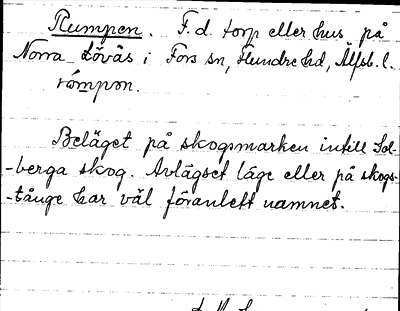 Rumpen. F.d. torp eller hus på
Norra Lövås i Fors sn, Flundre hd, Älfsb. l.
rómpon.
Beläget på skogsmarken intill Sol-
-berga skog. Avlägset läge eller på skogs-
-tånge har väl föranlett namnet.